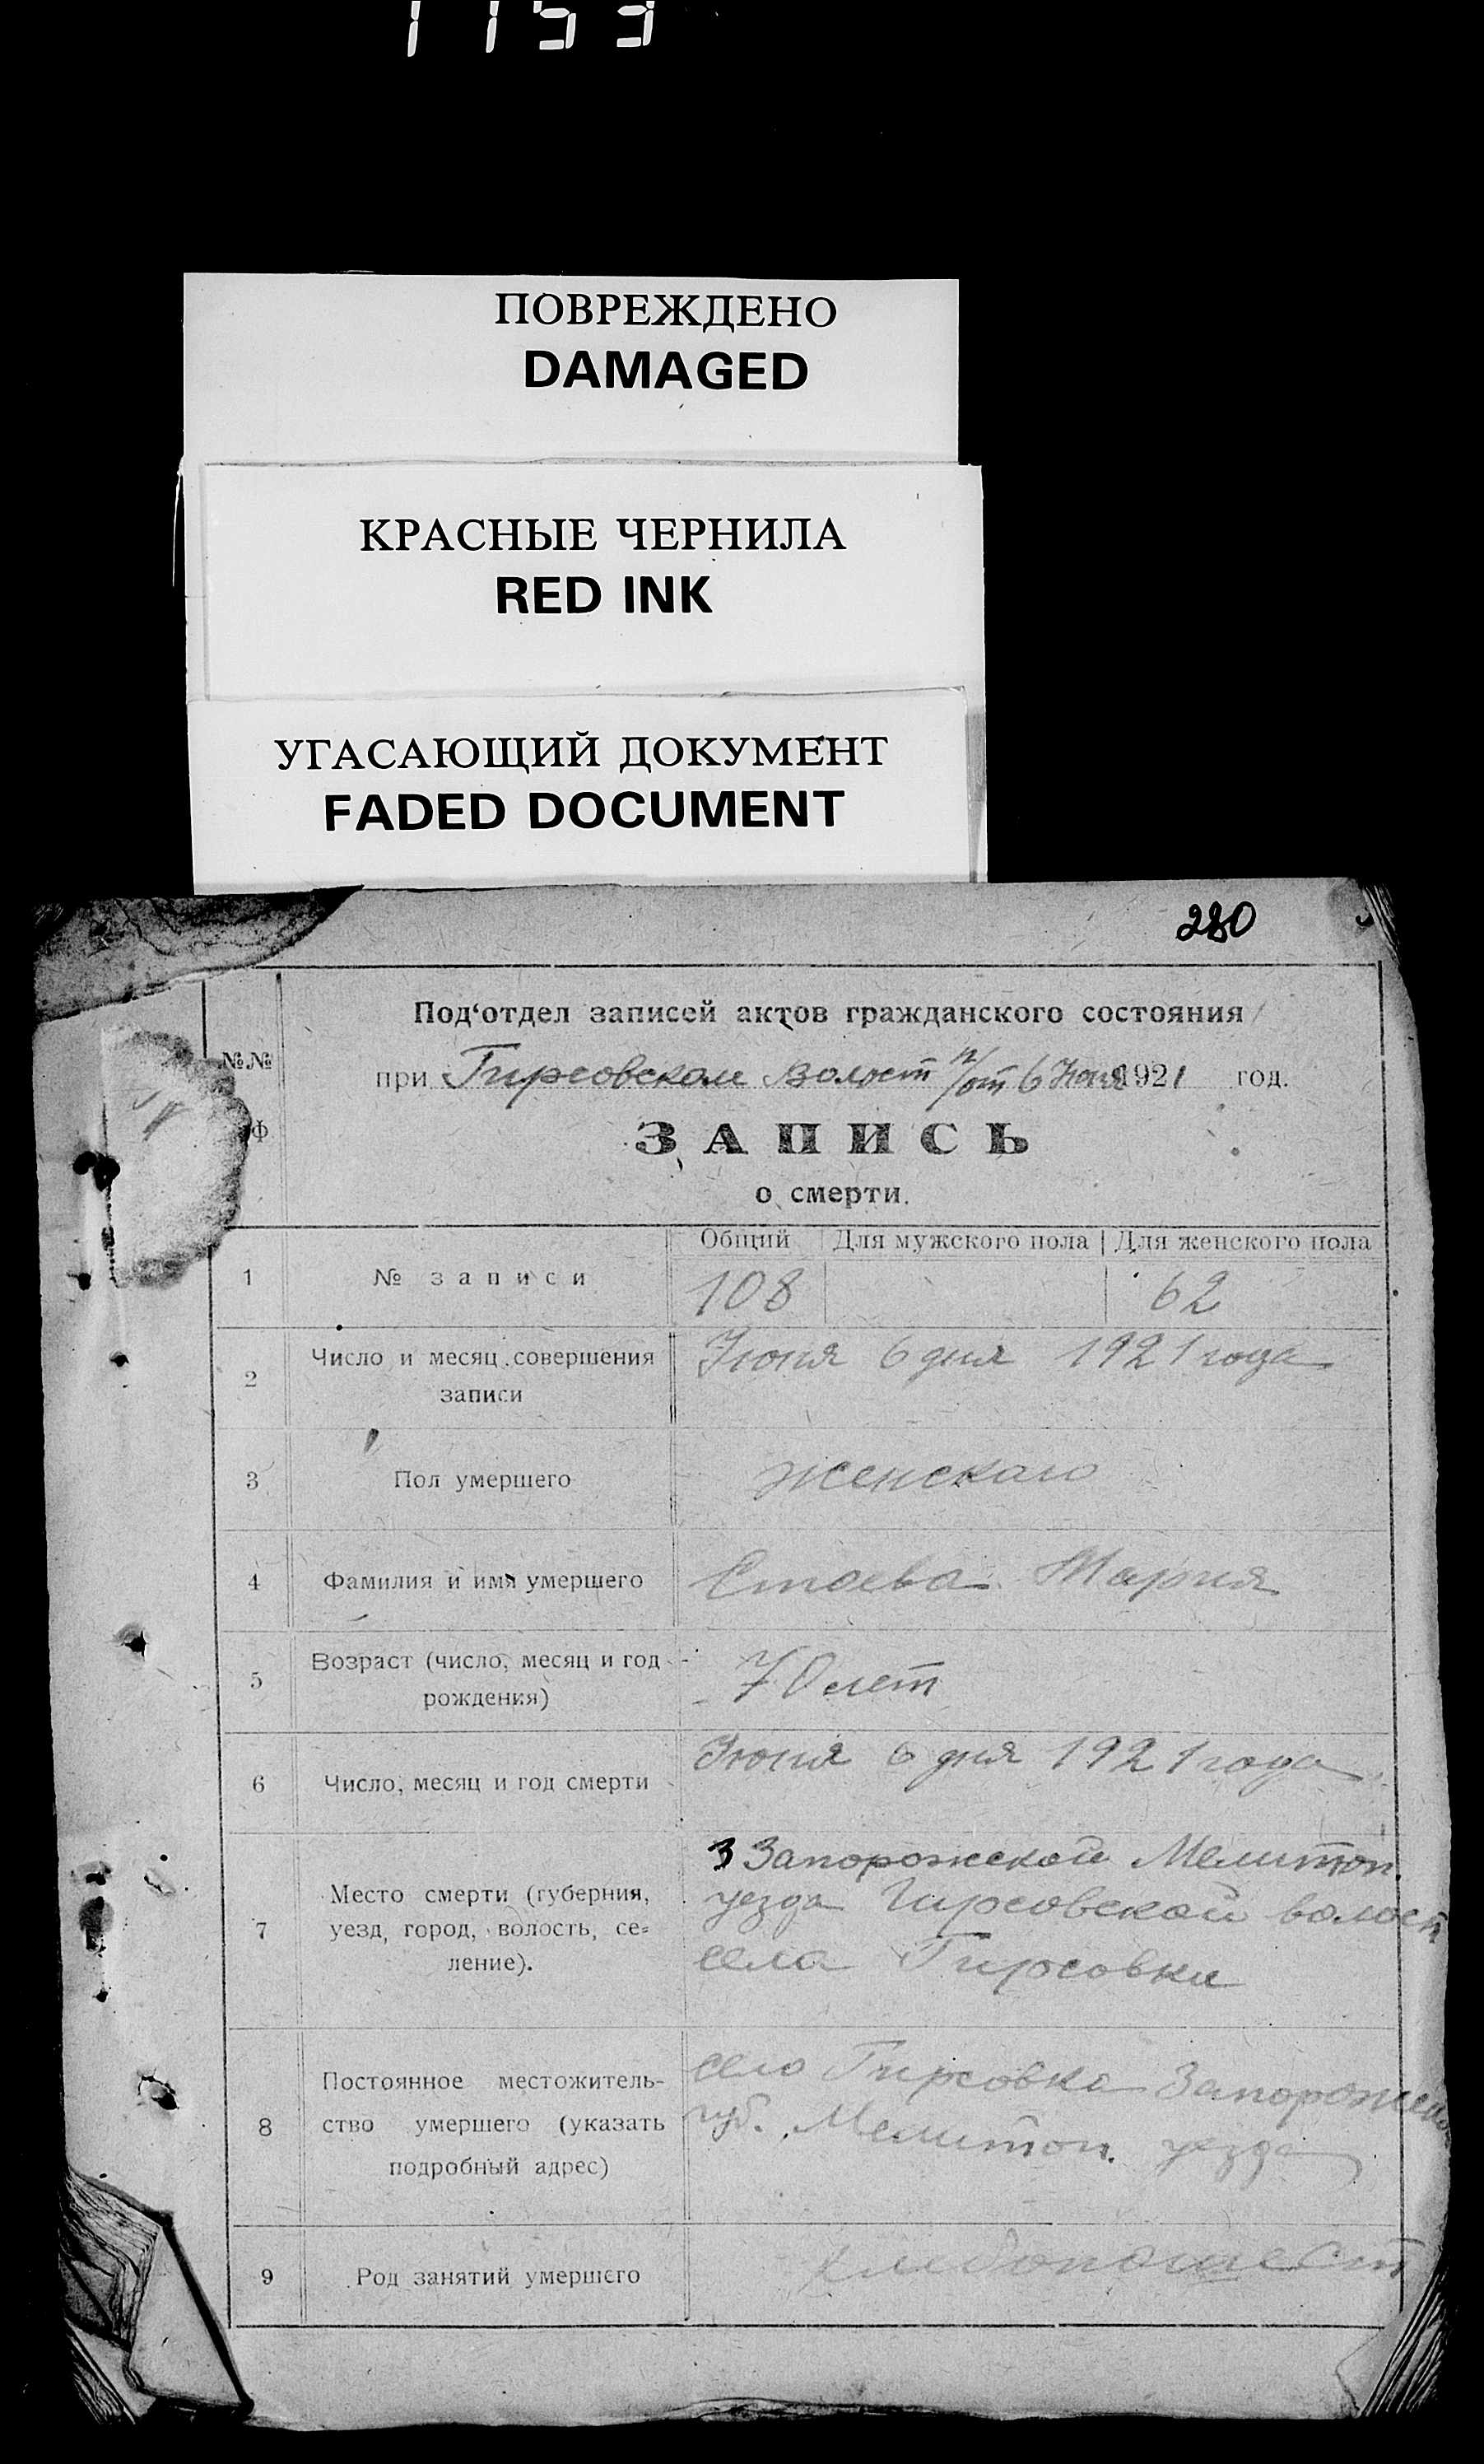 1153
ПОВРЕЖДЕНО
DAMAGED
КРАСНЫЕ ЧЕРНИЛА
RED INK
УГАСАЮЩИЙ ДОКУМЕНТ
FADED DOCUMENT
280
Под'отдел записей актов гражданского состояния
№№
при Гирсовском Волост п/от 6 Июня 1921 год.
ф
ЗАПИСЬ
о смерти.
Общий Для мужского пола Для женского пола
1 № записи 108 62
2 Число и месяц совершения Июня 6 дня 1921 года
записи
3 Пол умершего женскаго
4 Фамилия и имя умершего Стоева Мария
5 Возраст (число, месяц и год 70 лет
рождения)
6 Число, месяц и год смерти Июня 6 дня 1921 года
7 Место смерти (губерния, Запорожской Мелитоп.
уезд, город, волость, се= уезда Гирсовской волост
ление). села Гирсовки
8 Постоянное местожитель- село Гирсовка Запорожско
ство умершего (указать губ. Мелитоп. уезда
подробный адрес)
9 Род занятий умершего хлебопашест